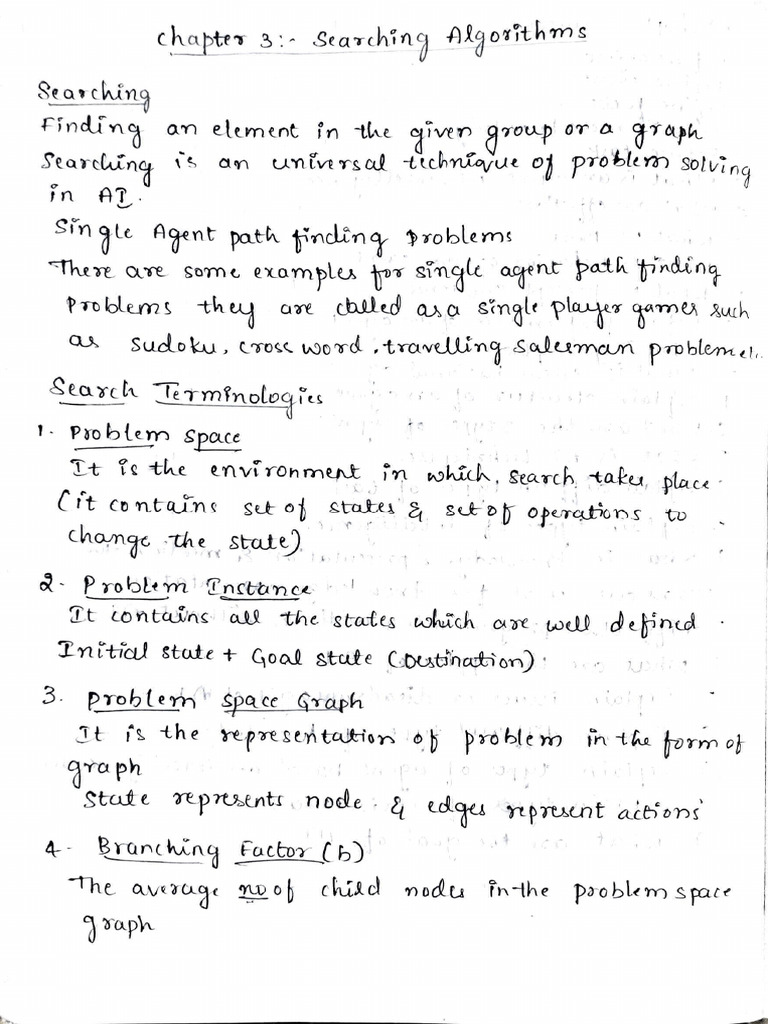 Chapter 3:- Searching Algorithms
Searching
Finding an element in the given group or a graph
Searching is an universal technique of problem solving
in AI.
Single Agent path finding Problems
There are some examples for single agent path finding
Problems they are called as a single player games such
as sudoku, cross word, travelling salesman problem etc.
Search Terminologies
1. Problem space
It is the environment in which, search takes place.
(it contains set of states & set of operations to
change the state)
2. Problem Instance
It contains all the states which are well defined.
Initial state + Goal state (Destination).
3. Problem space Graph
It is the representation of problem in the form of
graph
State represents node & edges represent actions
4. Branching Factor (b)
The average no of child nodes in the problem space
graph